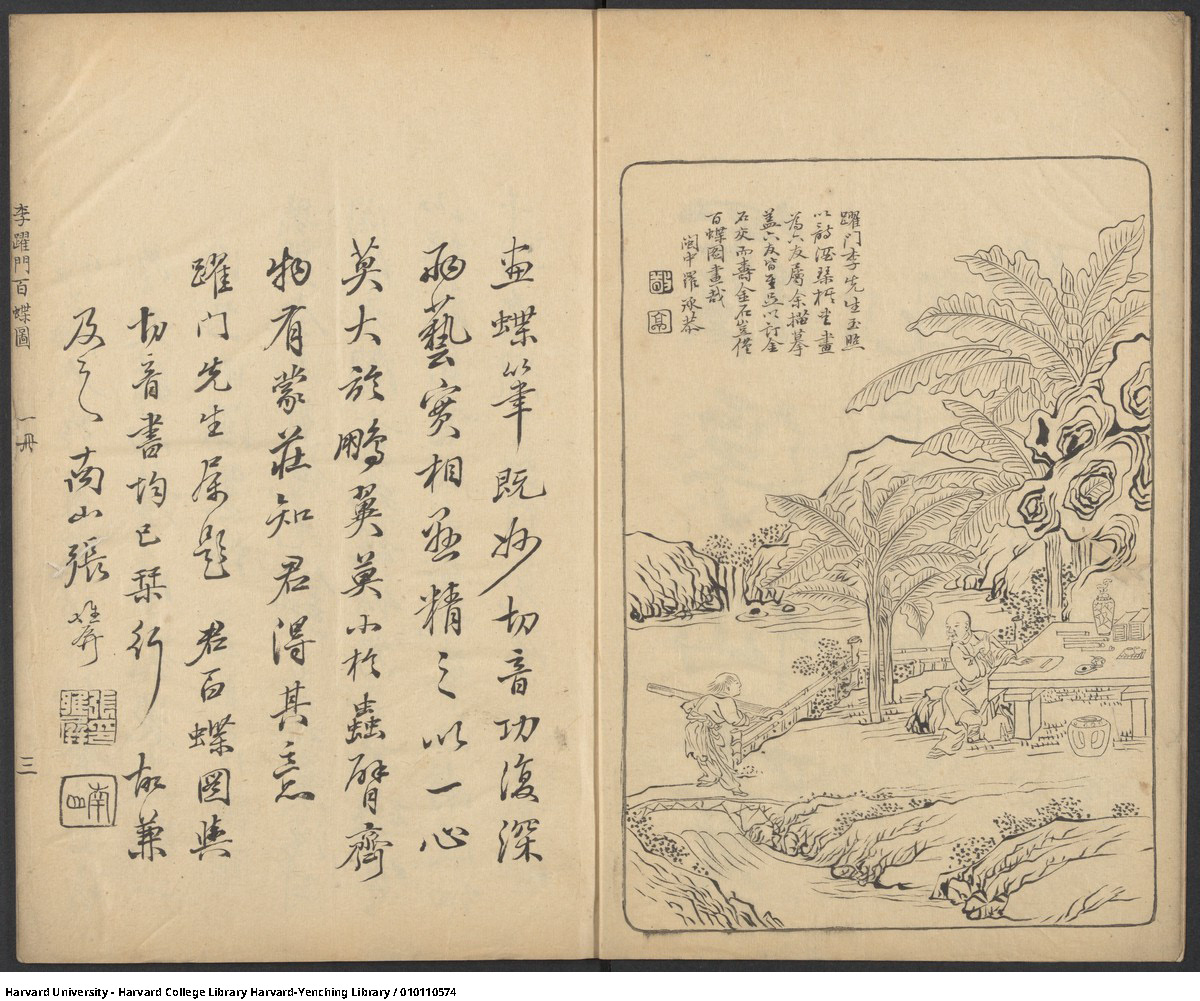 躍門李先生玉照
以詩酒琴棋書畫
為六友屬余描摹
蓋六友皆至足以訂金
石交而壽金石豈僅
百蝶圖畫哉
閩中羅
畫蝶筆既妙切音功復深
兩藝實相無精之以一心
莫大於鵬翼莫小於蟲臂齊
物有蒙莊知君得其意
躍门先生屬題 君百蝶圖與
切音書均已琹行 故兼
及之 南山張維屏
張維屏印
南山
李躍門百蝶圖 一冊 三
Harvard University - Harvard College Library Harvard-Yenching Library / 010110574